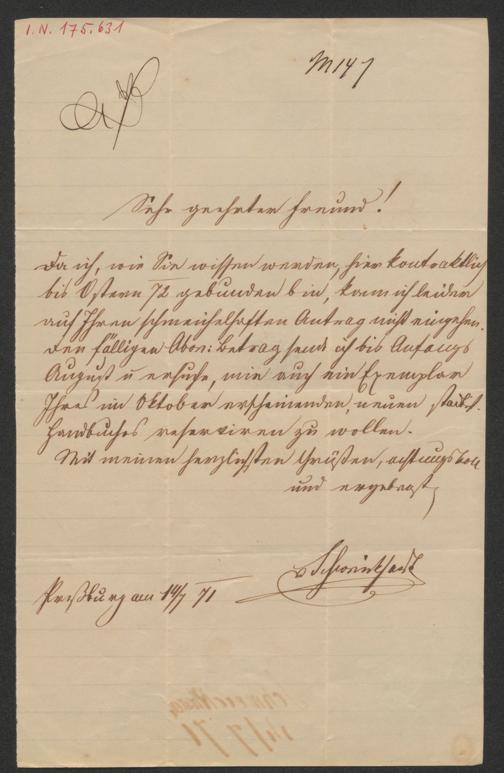 I.N. 175.631
Sehr geehrter Freund!
Da ich, wie Sie wissen werden, hier kontraktlich
bis Ostern 72 gebunden bin, kann ich leider
auf Ihren schmeichelhaften Antrag nicht eingehen.
Den fälligen Abon: Betrag sende ich bis Anfangs
August u ersuche, mir auch ein Exemplar
Ihres im Oktober erscheinenden, neuen statist.
Handbuches reserviren zu wollen.
Mit meinen herzlichsten Grüßen, achtungsvoll
und ergebenst
Preßburg am 14/7 71
14/7 71